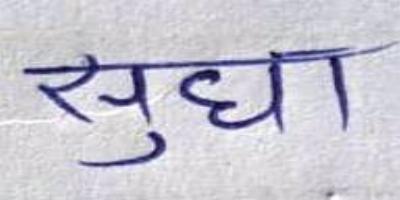 सुधा